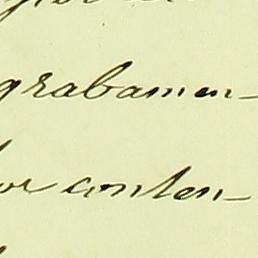 grabamen-
or conten-